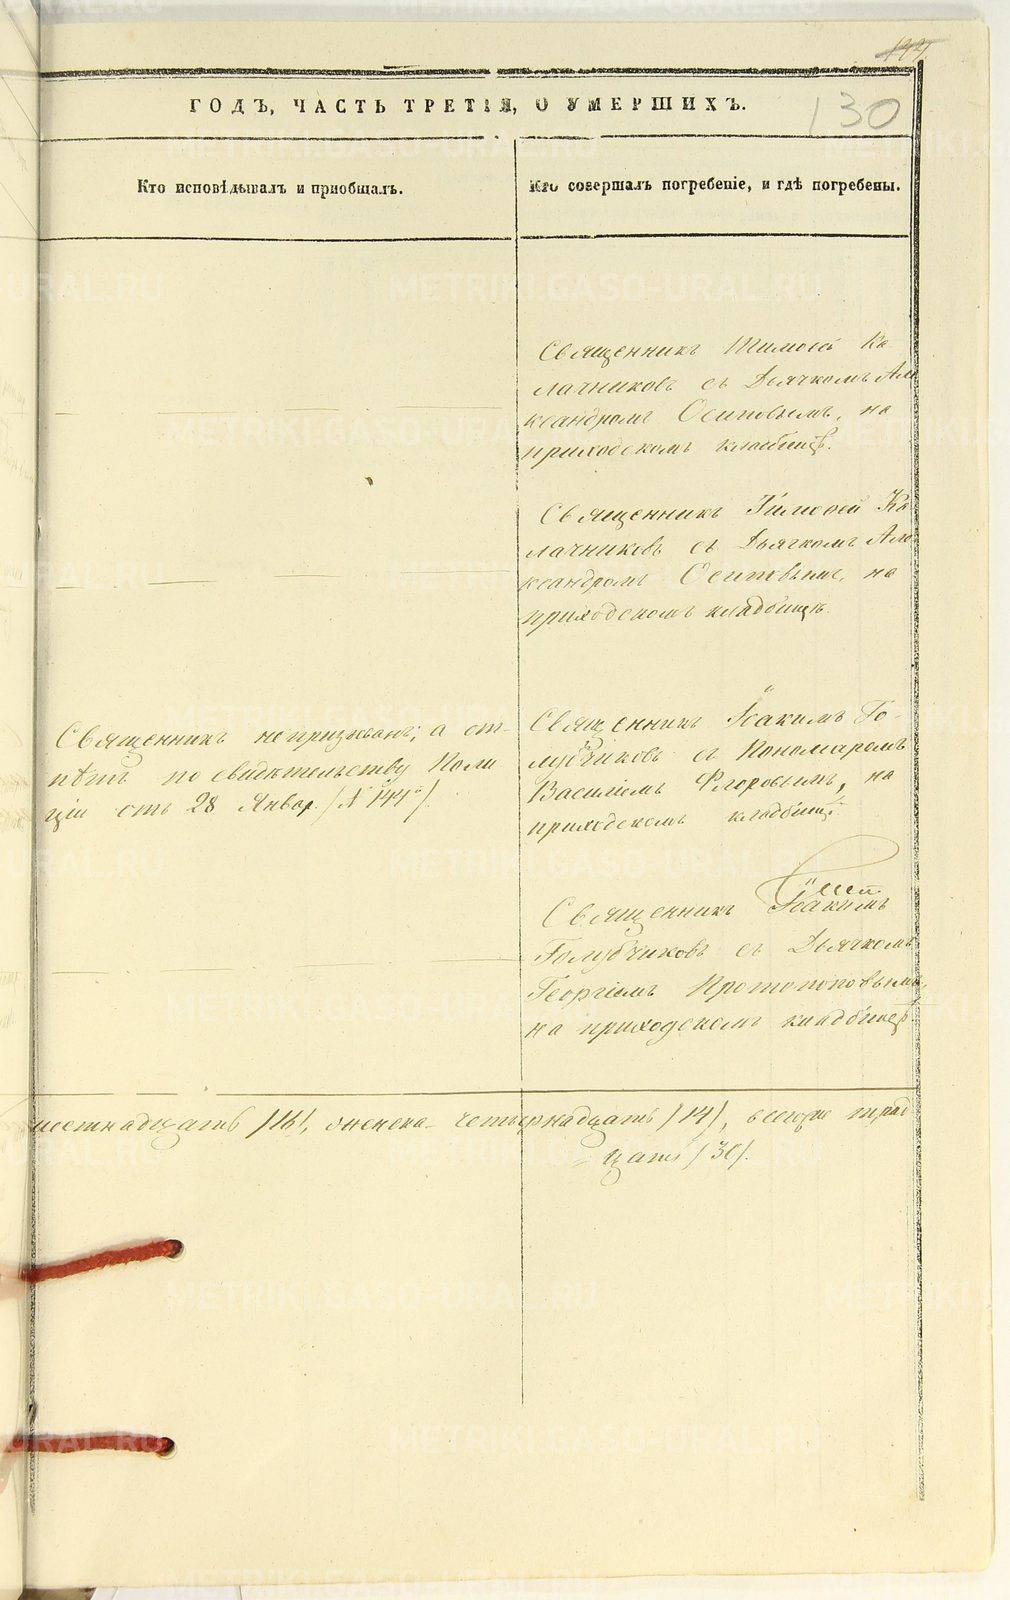 130
ГОДЪ, ЧАСТЬ ТРЕТІЯ, О УМЕРШИХЪ.
Кто исповѣдывалъ и пріобщалъ.
Кто совершалъ погребеніе, и гдѣ погребены.
Священникъ Тимофей Ка
лачниковъ съ Дьячкомъ Але
ксандромъ Осиповымъ, на
приходскомъ кладбищѣ.
Священникъ Тимофей Ка
лачниковъ съ Дьячкомъ Але
ксандромъ Осиповымъ, на
приходскомъ кладбищѣ.
Священникъ непризыванъ; а от-
пѣтъ по свидѣтельству Поли
ціи отъ 28 Январ. (№ 144º).
Священникъ Іоакимъ Го-
лубчиковъ съ Пономаремъ
Василіемъ Флоровымъ, на
приходскомъ кладбищѣ.
Священникъ Іоакимъ
Голубчиковъ съ Дьячкомъ
Георгіемъ Протопоповымъ,
на приходскомъ кладбищѣ.
шестнадцать /16/, женска четырнадцать /14/, всего трид-
цать /30/.
METRIKI.GASO-URAL.RU